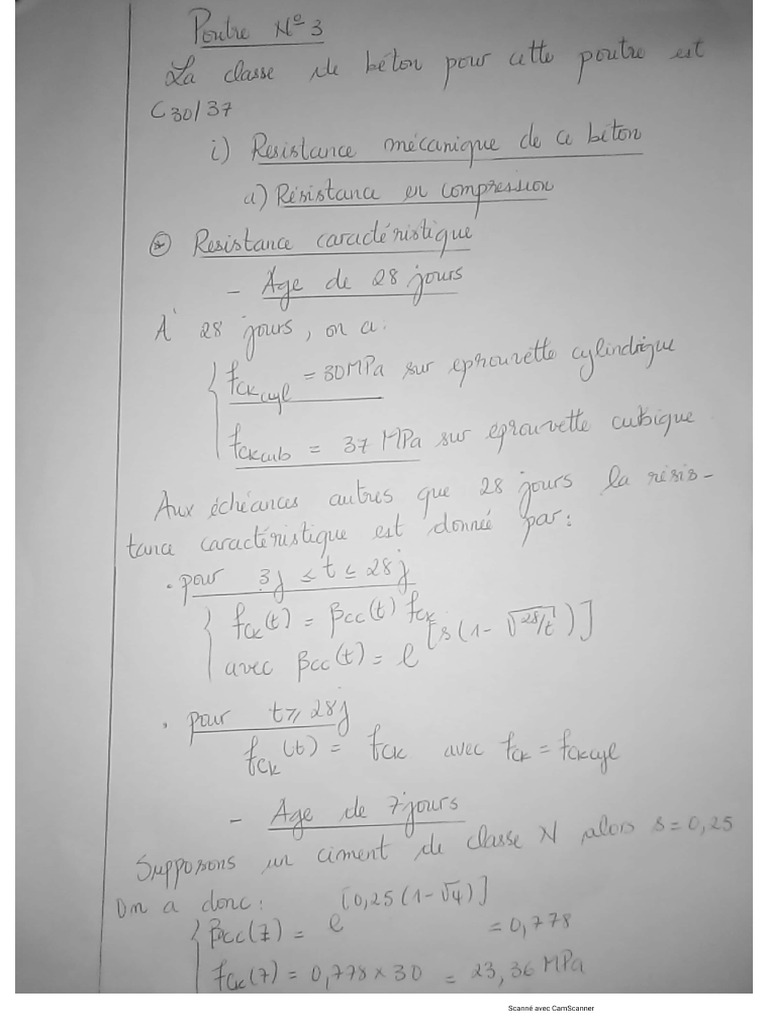 Poutre N° 3
La classe de béton pour cette poutre est
C30/37
i) Resistance mécanique de ce béton
a) Résistance en compression
⊛ Resistance caractéristique
- Âge de 28 jours
A' 28 jours, on a:
{ fck cyl = 30MPa sur eprouvette cylindrique
fck cub = 37 MPa sur éprouvette cubique
Aux échéances autres que 28 jours la résis-
tance caractéristique est donnée par:
• pour 3j ≤ t ≤ 28j
{ fck(t) = βcc(t) fck
avec βcc(t) = e^[s(1-√28/t)]
• pour t ≥ 28j
fck(t) = fck avec fck = fckcyl
- Age de 7 jours
Supposons un ciment de classe N alors s = 0,25
On a donc:
{ βcc(7) = e^[0,25(1-√4)] = 0,778
fck(7) = 0,778 x 30 = 23,36 MPa
Scanné avec CamScanner